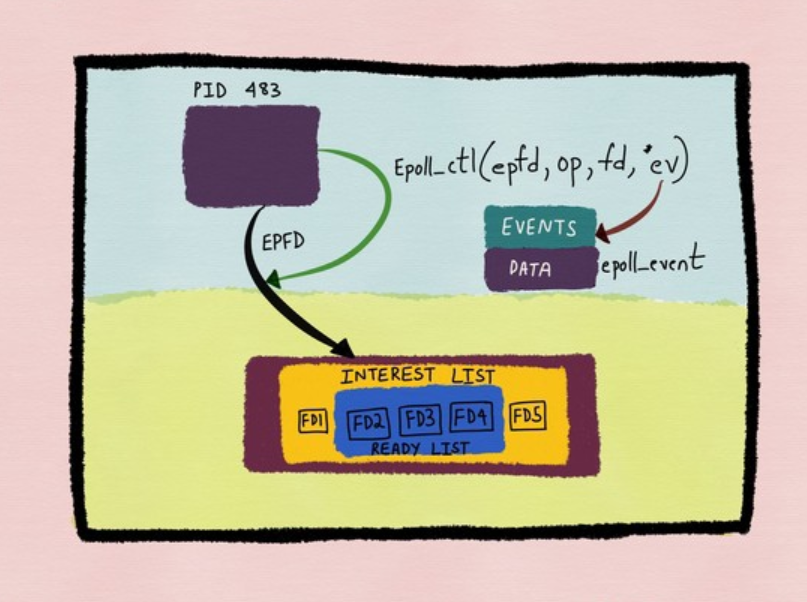 PID 483
Epoll_ctl(epfd, op, fd, *ev)
EVENTS
EPFD
DATA
epoll_event
INTEREST LIST
FD1 FD2 FD3 FD4 FD5
READY LIST